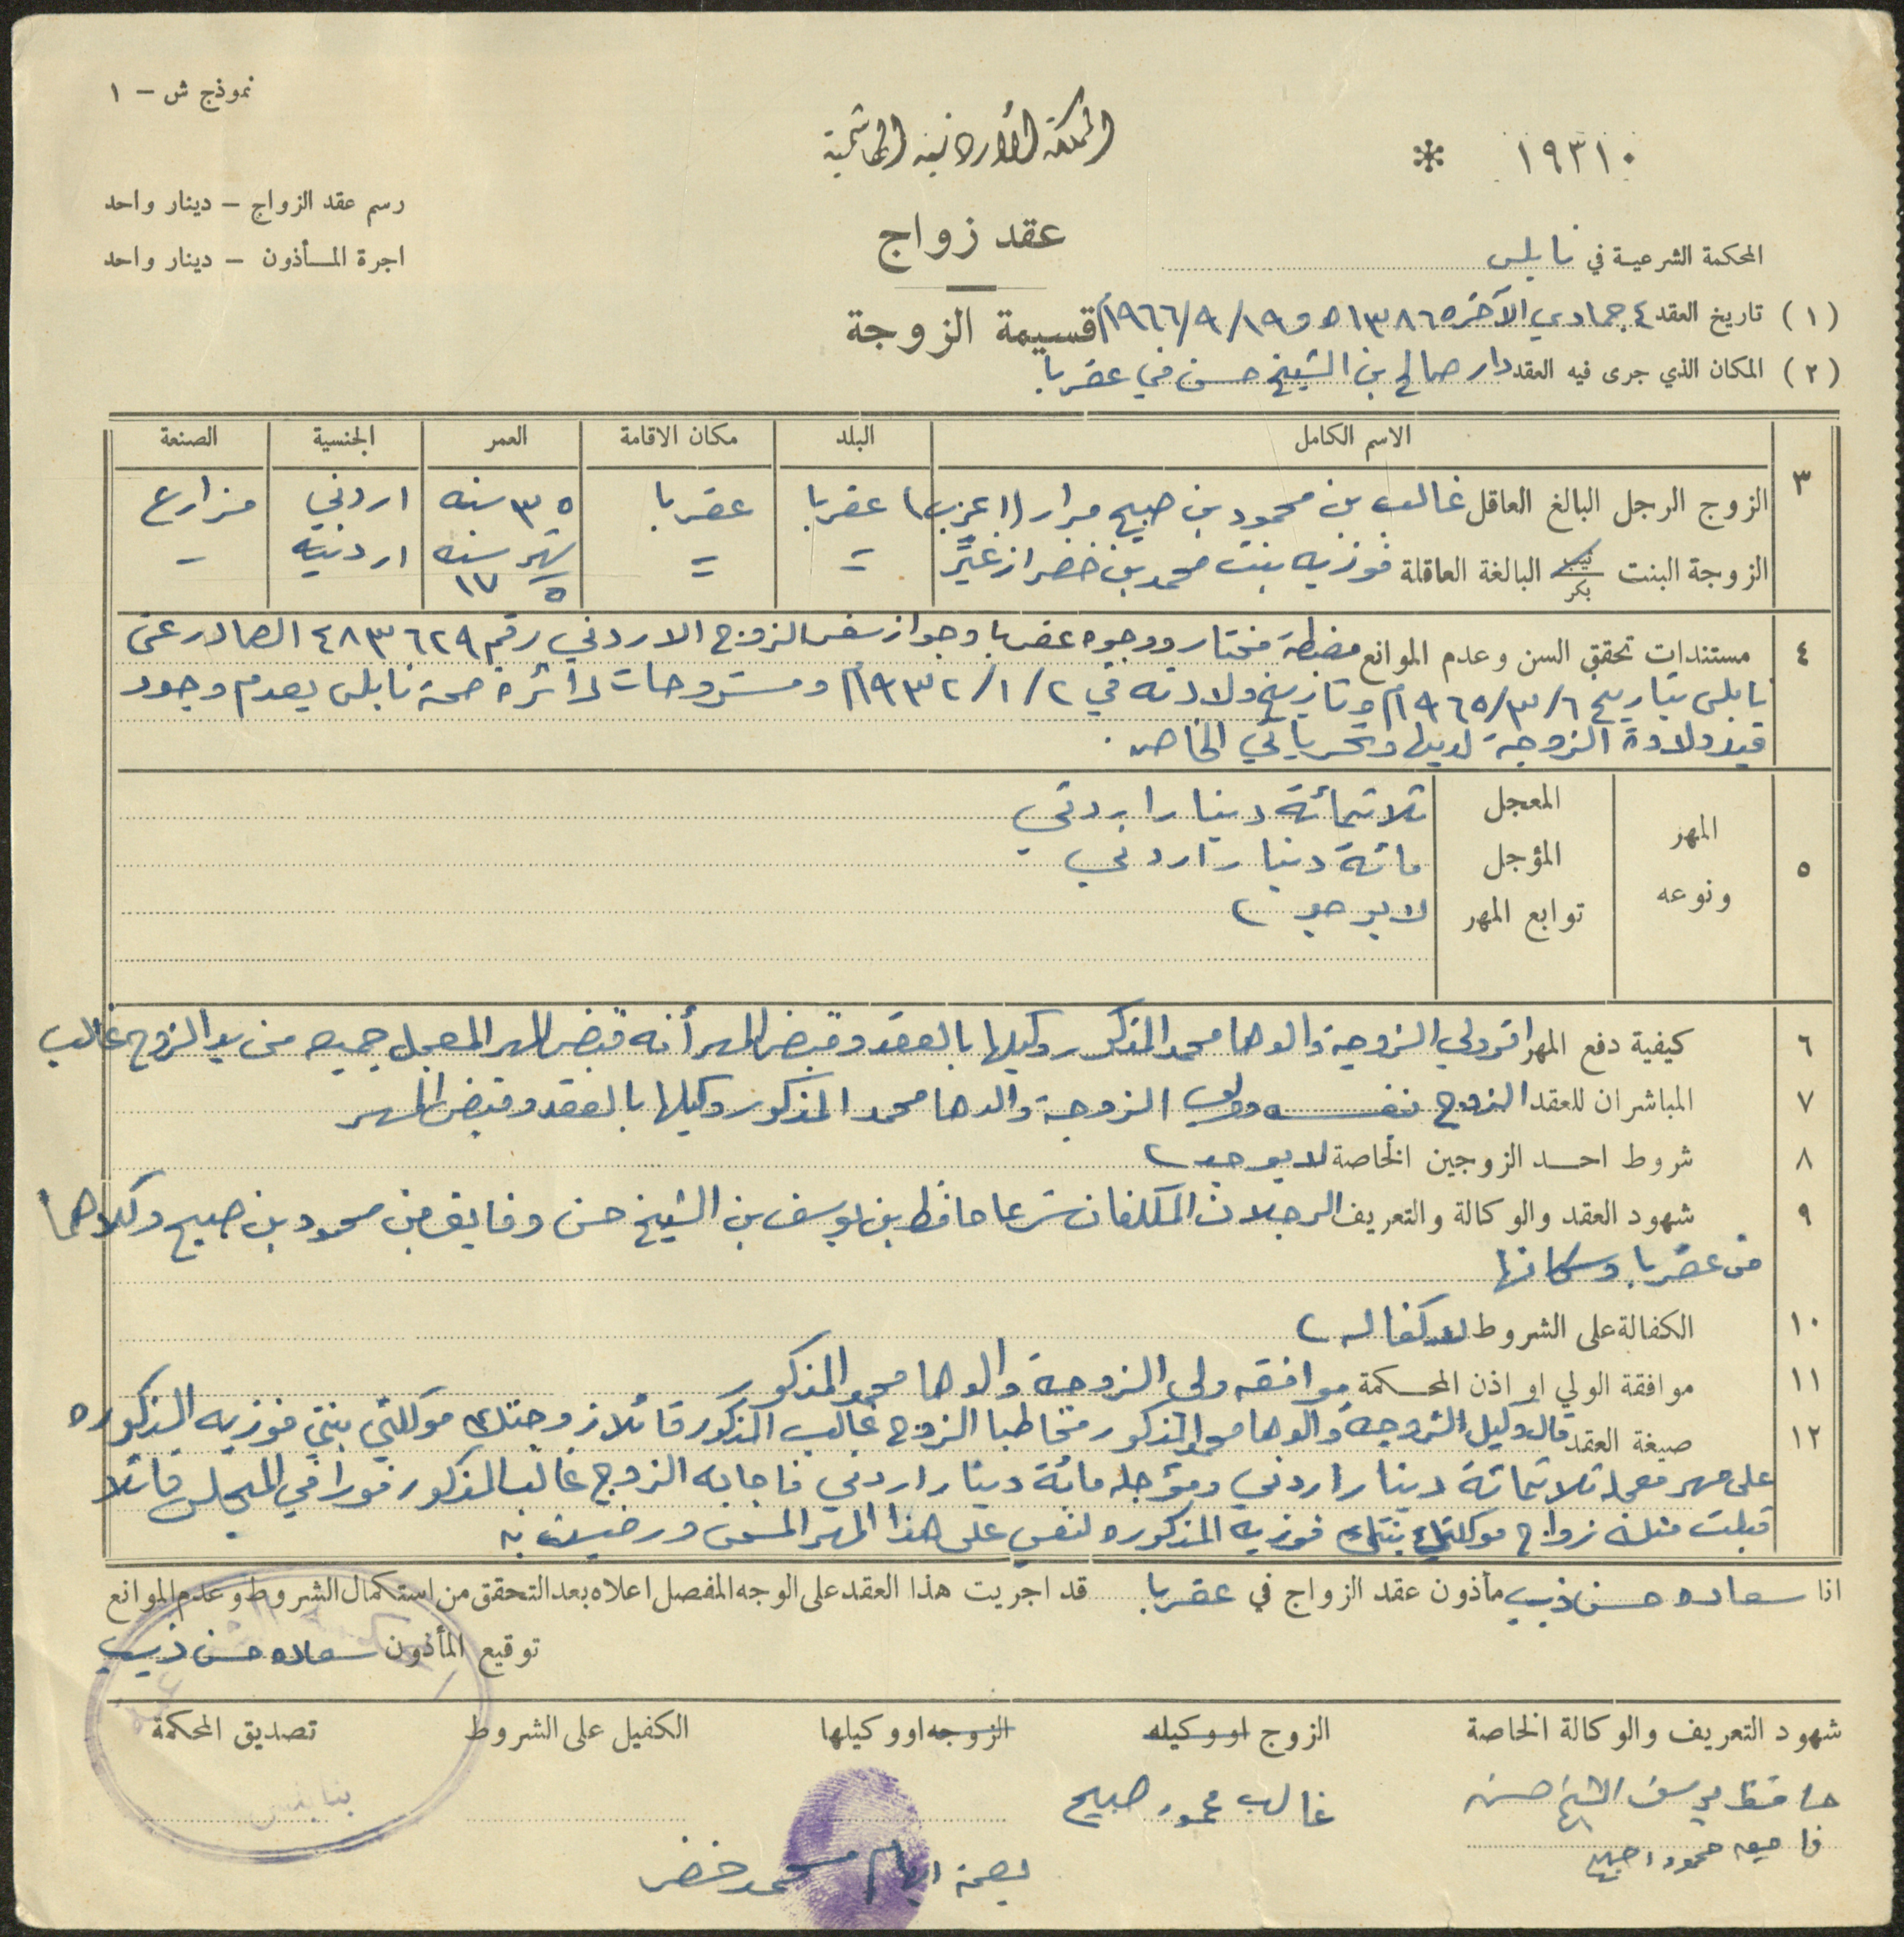 نموذج ش - ١
١٩٣١٠ *
المملكة الأردنية الهاشمية
رسم عقد الزواج - دينار واحد
اجرة المأذون - دينار واحد
عقد زواج
قسيمة الزوجة
المحكمة الشرعية في نابلس
(١) تاريخ العقد ٤ جمادي الآخره ١٣٨٦ه و ١٩/٩/١٩٦٦م
(٢) المكان الذي جرى فيه العقد دار صالح بن الشيخ حسن في عقربا
٣ الاسم الكامل البلد مكان الاقامة العمر الجنسية الصنعة
الزوج الرجل البالغ العاقل غالب بن محمود بن صبيح مرار (اعزب) عقربا عقربا ٣٥ سنه اردني مزارع
الزوجة البنت ثيب بكر البالغة العاقلة فوزيه بنت محمد بن خضر ازغير = = شهر سنه ٥ ١٧ اردنية -
٤ مستندات تحقق السن وعدم الموانع مضبطة مختار ووجوه عقربا وجواز سفر الزوج الاردني رقم ٤٨٣٦٢٩ الصادر عن
نابلس بتاريخ ٦/٣/١٩٦٥م وتاريخ ولادته في ٢/١/١٩٣٢م ومشروحات دائرة صحة نابلس بعدم وجود
قيد ولادة الزوجة لديها وتحرياتي الخاصه .
٥ المهر ونوعه
المعجل ثلاثمائة دينار اردني
المؤجل مائة دينار اردني
توابع المهر لا يوجد
٦ كيفية دفع المهر اقر ولي الزوجة والدها محمد المذكور وكيلها بالعقد وقبض المهر أنه قبض المهر المعجل جميعه من يد الزوج غالب
٧ المباشران للعقد الزوج نفسه وولي الزوجة والدها محمد المذكور وكيلها بالعقد وقبض المهر
٨ شروط احد الزوجين الخاصة لا يوجد
٩ شهود العقد والوكالة والتعريف الرجلان المكلفان شرعا حافظ بن يوسف بن الشيخ حسن وفايق بن محمود بن صبيح وكلاهما
من عقربا وسكانها
١٠ الكفالة على الشروط لا كفاله
١١ موافقة الولي او اذن المحكمة موافقه ولي الزوجة والدها محمد المذكور
١٢ صيغة العقد قال وكيل الزوجة والدها محمد المذكور مخاطبا الزوج غالب المذكور قائلا زوجتك موكلتي بنتي فوزيه المذكوره
على مهر معجله ثلاثمائة دينار اردني ومؤجله مائة دينار اردني فاجابه الزوج غالب المذكور فورا في المجلس قائلا
قبلت منك زواج موكلتك بنتك فوزيه المذكوره لنفسي على هذا المهر المسمى ورضيت به
انا سعاده حسن ذيب مأذون عقد الزواج في عقربا قد اجريت هذا العقد على الوجه المفصل اعلاه بعد التحقق من استكمال الشروط وعدم الموانع
توقيع المأذون سعاده حسن ذيب
شهود التعريف والوكالة الخاصة الزوج او وكيله الزوجه او وكيلها الكفيل على الشروط تصديق المحكمة
حافظ يوسف الشيخ حسن غالب محمود صبيح
فايق محمود صبيح
بصمة ابهام محمد خضر
بنابلس